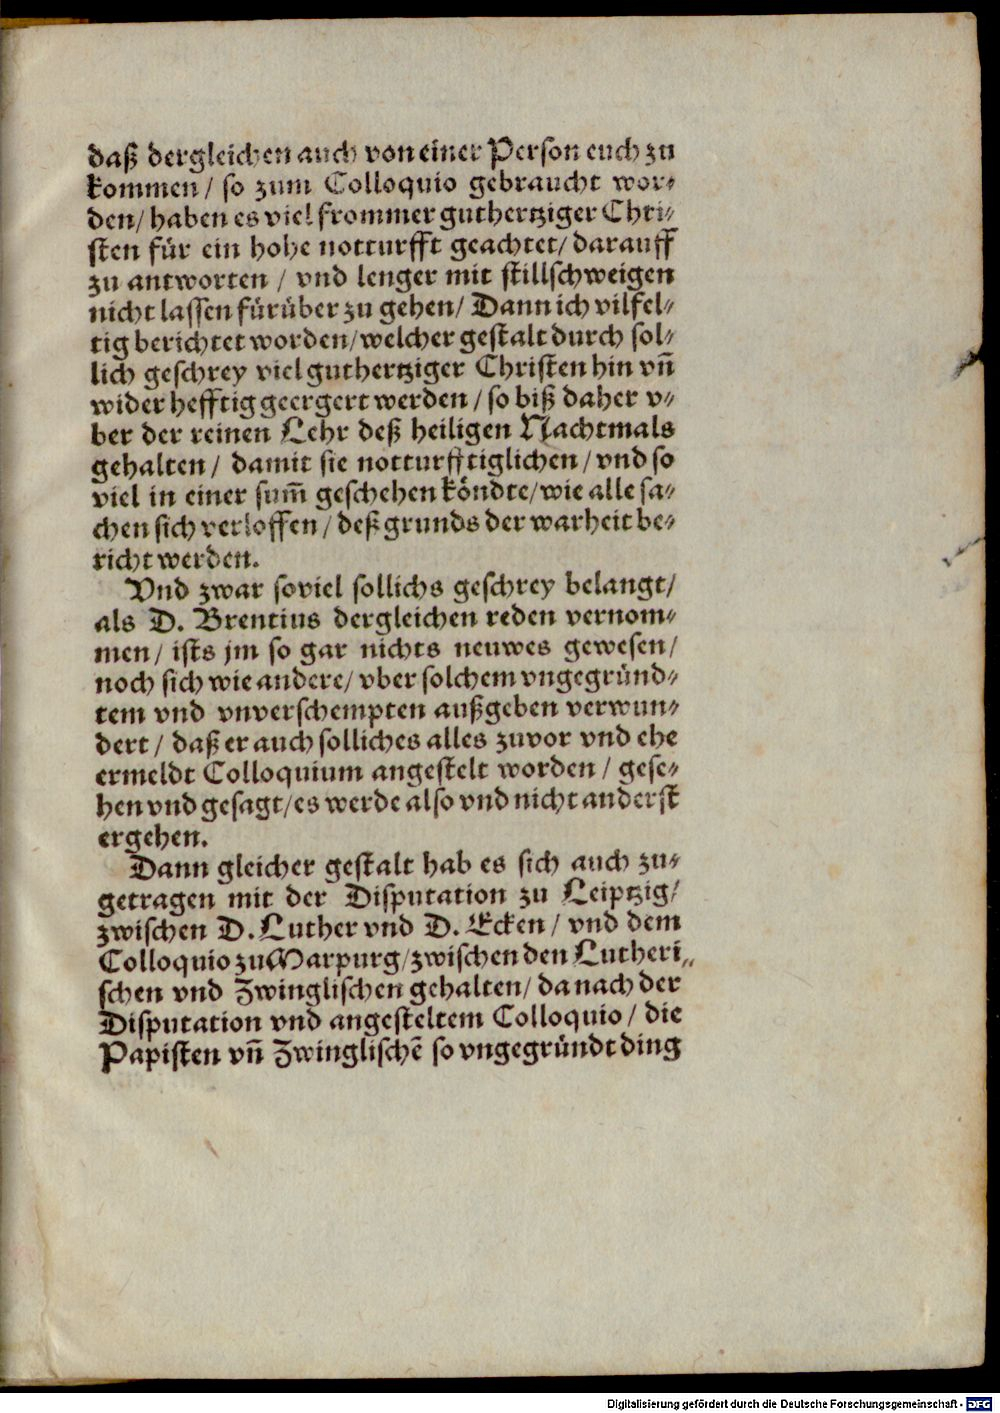 daß dergleichen auch von einer Person euch zu
kommen / so zum Colloquio gebraucht wor⸗
den / haben es viel frommer guthertziger Chri⸗
sten für ein hohe notturfft geachtet / darauff
zu antworten / vnd lenger mit stillschweigen
nicht lassen fürüber zu gehen / Dann ich vilfel⸗
tig berichtet worden / welcher gestalt durch sol⸗
lich geschrey viel guthertziger Christen hin vñ
wider hefftig geergert werden / so biß daher v⸗
ber der reinen Lehr deß heiligen Nachtmals
gehalten / damit sie notturfftiglichen / vnd so
viel in einer sum̃ geschehen köndte / wie alle sa⸗
chen sich verloffen / deß grunds der warheit be⸗
richt werden.
Vnd zwar soviel sollichs geschrey belangt /
als D. Brentius dergleichen reden vernom⸗
men / ists jm so gar nichts neuwes gewesen /
noch sich wie andere / vber solchem vngegründ⸗
tem vnd vnverschempten außgeben verwun⸗
dert / daß er auch solliches alles zuvor vnd ehe
ermeldt Colloquium angestelt worden / gese⸗
hen vnd gesagt / es werde also vnd nicht anderst
ergehen.
Dann gleicher gestalt hab es sich auch zu⸗
getragen mit der Disputation zu Leiptzig /
zwischen D. Luther vnd D. Ecken / vnd dem
Colloquio zu Marpurg / zwischen den Lutheri⸗
schen vnd Zwinglischen gehalten / da nach der
Disputation vnd angesteltem Colloquio / die
Papisten vñ Zwinglischẽ so vngegründt ding
Digitalisierung gefördert durch die Deutsche Forschungsgemeinschaft - DFG